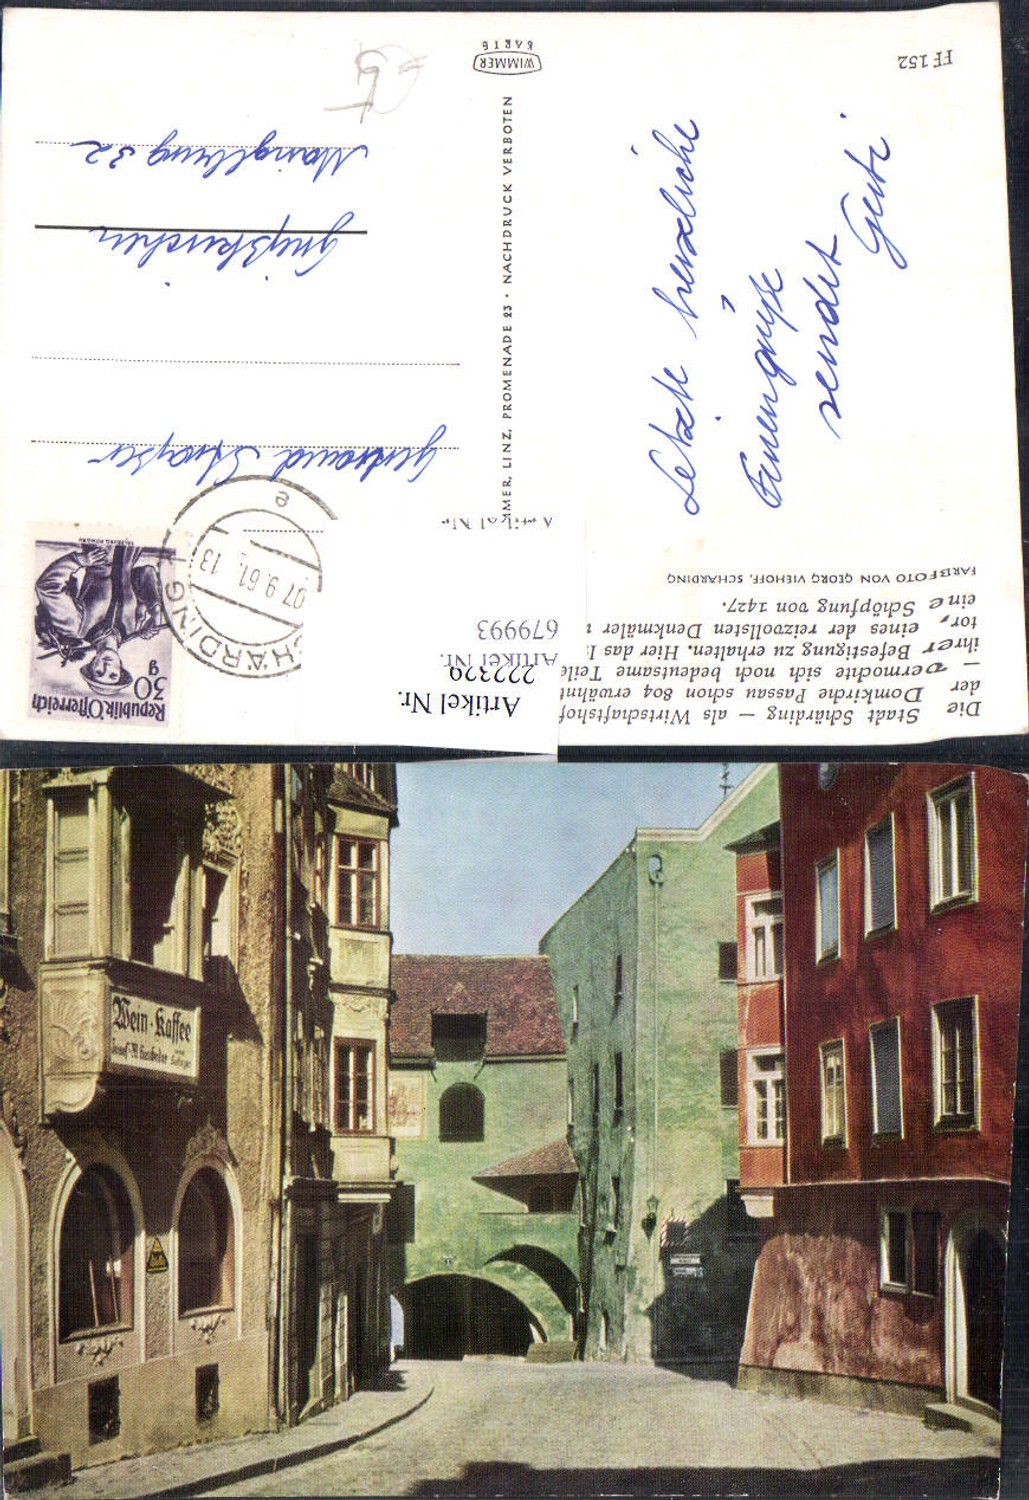 Die Stadt Schärding — als Wirtschaftshof
der Domkirche Passau schon 804 erwähnt
— vermochte sich noch bedeutsame Teile
ihrer Befestigung zu erhalten. Hier das
tor, eines der reizvollsten Denkmäler
eine Schöpfung von 1427.
FARBFOTO VON GEORG VIEHOFF, SCHÄRDING
Letzte herzliche
Feriengrüße
sendet
Gerti
FF 152
WIMMER
KARTE
MMER, LINZ, PROMENADE 23 · NACHDRUCK VERBOTEN
Artikel Nr.
222329
Artikel Nr.
679993
Artikel Nr.
Republik Österreich
30
g
SALZBURG, PONGAU
SCHÄRDING 1
07.9.61. 13
e
Gertraud Straßer
Grießkirchen
Manglburg 32
Wein-Kaffee
Josef